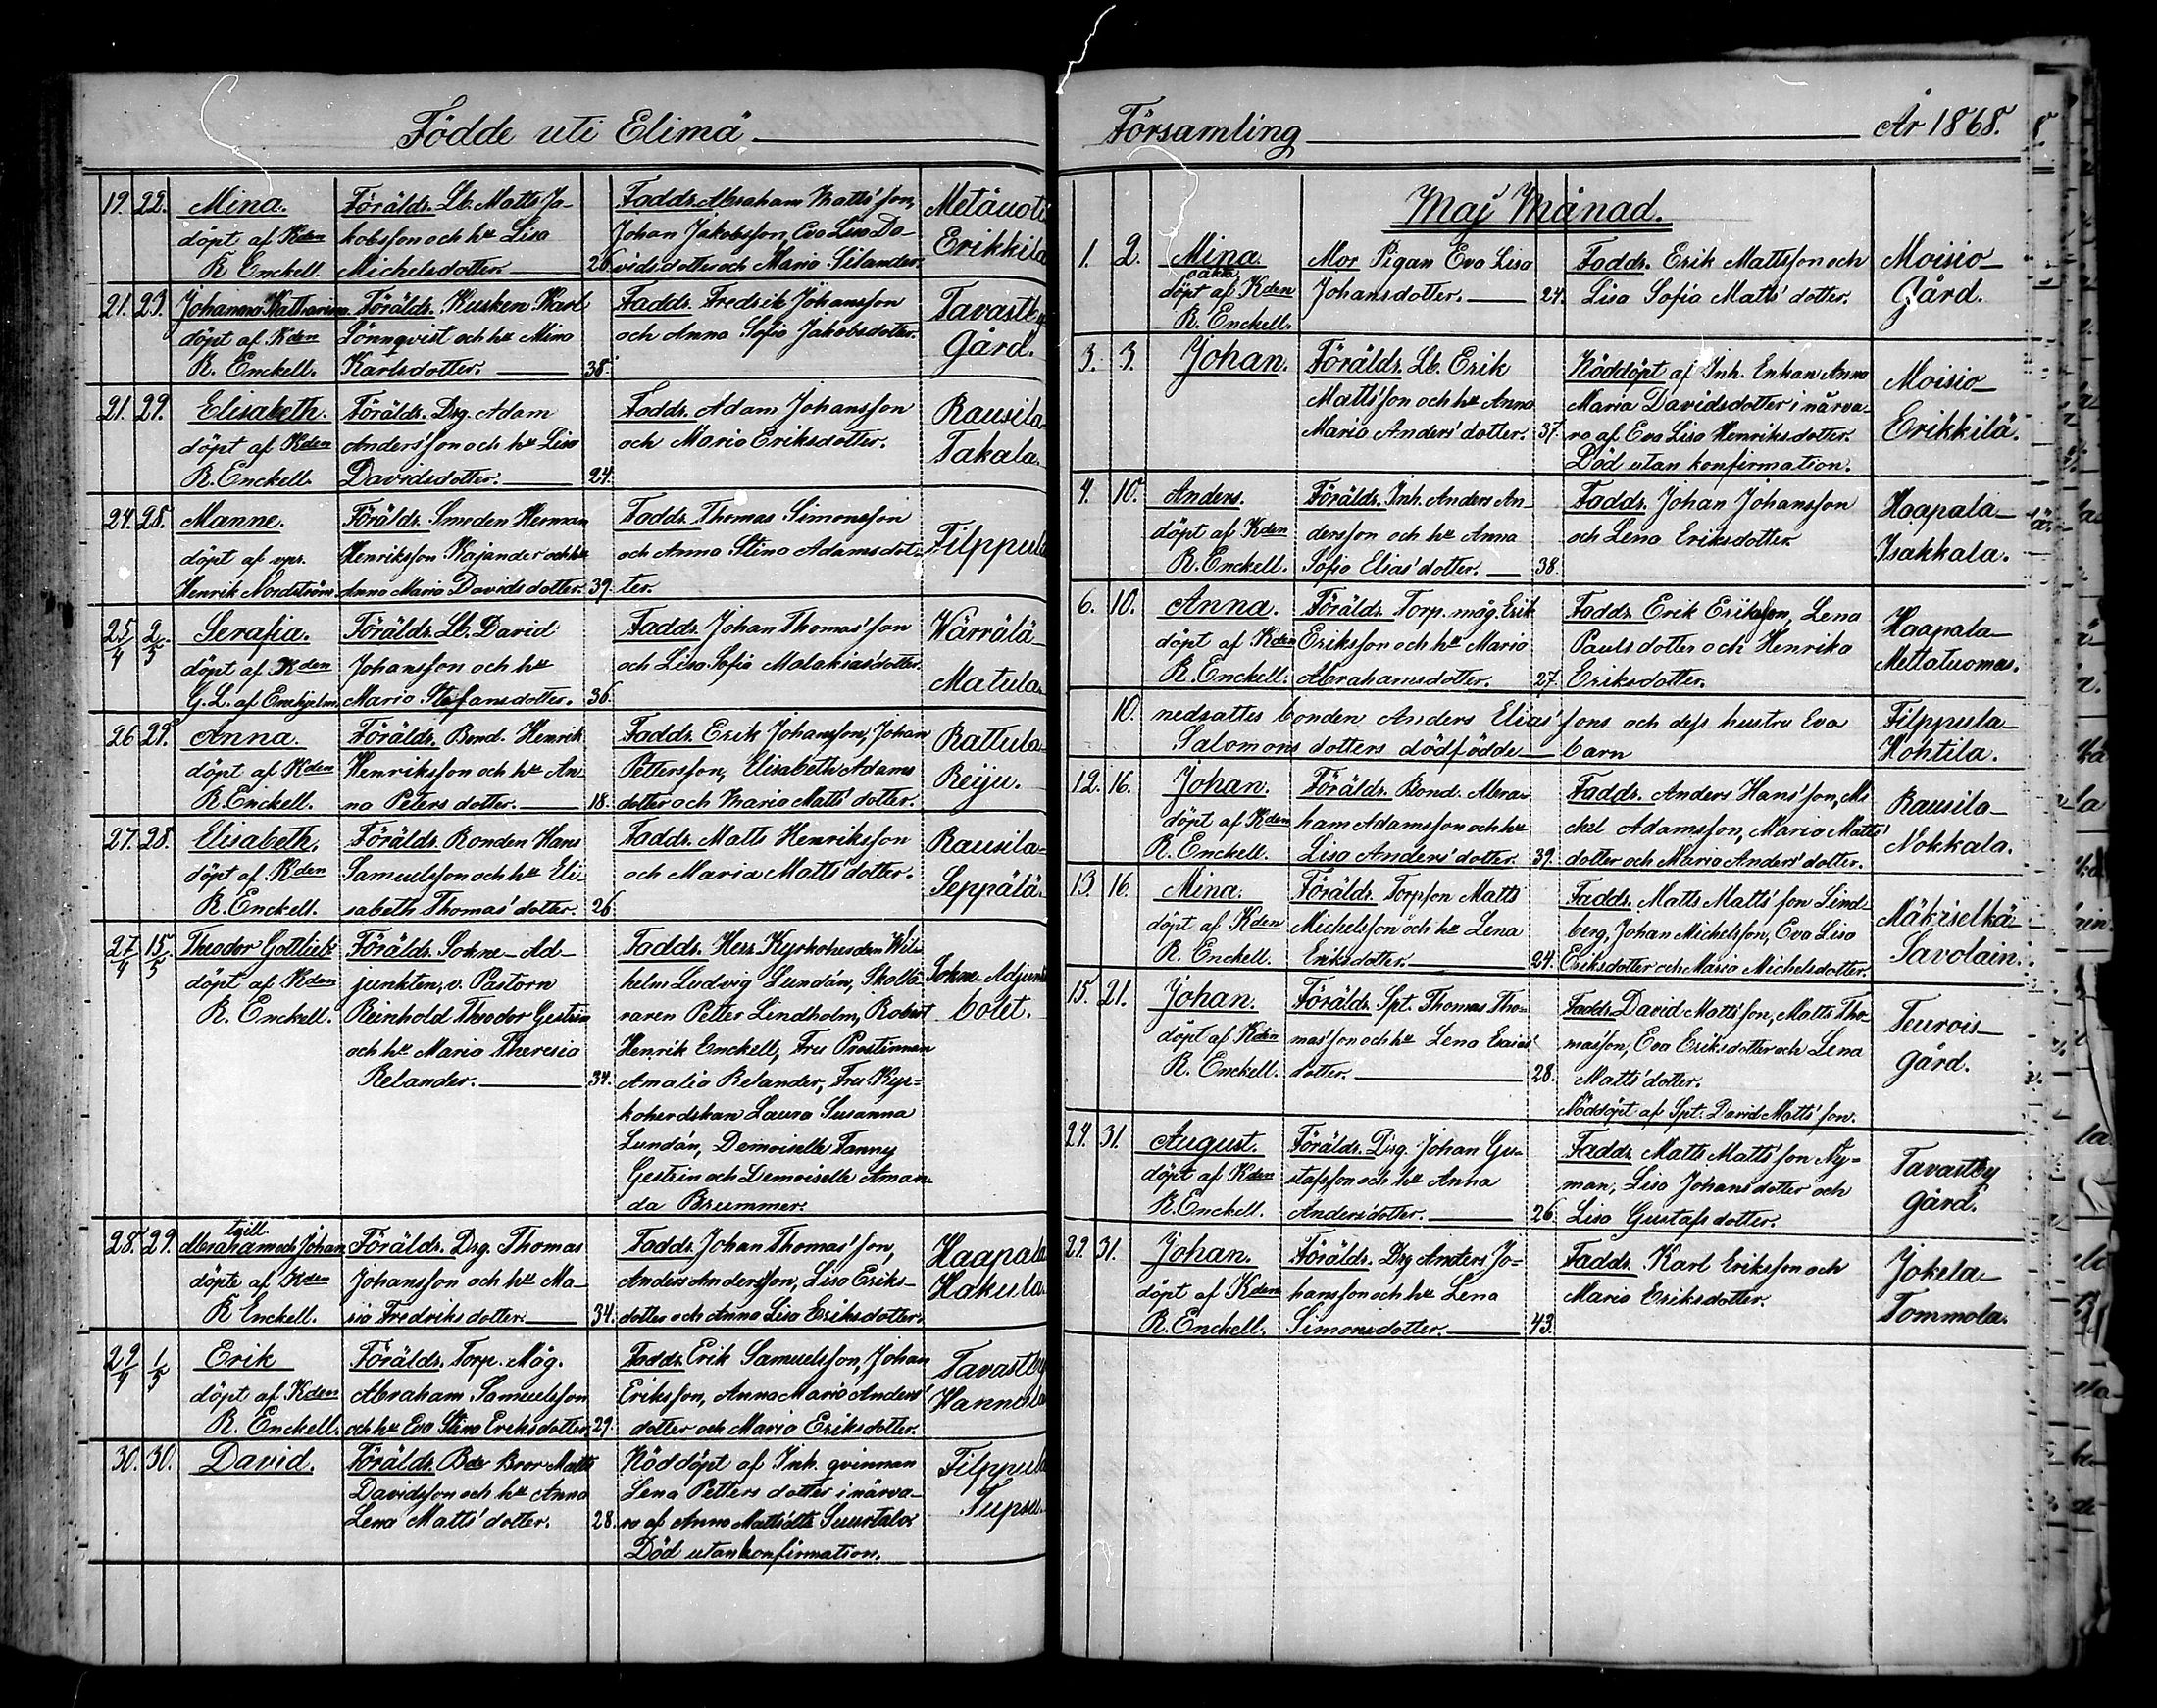 Födde uti Elimä
19. 22. Mina. Föräldr. Lb. Matts Ja- Faddr. Abraham Matts'son, Metäuoti
döpt af Kden kobsson och hu Lisa Johan Jakobsson, Eva Lisa Da- Erikkila
R Enckell. Michelsdotter. 26 vidsdotter och Maria Silander.
21. 23. Johanna Katharina Föräldr. Kusken Karl Faddr. Fredrik Johansson Tavastby
döpt af Kden Lönnqvist och hu Mina och Anna Sofia Jakobsdotter. Gård.
R. Enckell. Karlsdotter. 38.
21. 29. Elisabeth. Föräldr. Drg. Adam Faddr. Adam Johansson Rausila
döpt af Kden Anders'son och hu Lisa och Maria Eriksdotter. Takala.
R. Enckell. Davidsdotter. 24.
24. 25. Manne. Föräldr. Smeden Herman Faddr. Thomas Simonsson Filppula
döpt af Henriksson Kajander och hu och Anna Stina Adamsdot-
Henrik Nordström. Anna Maria Davidsdotter. 39. ter.
25/4 2/5 Serafia. Föräldr. Lb. David Faddr. Johan Thomas'son Wärrälä-
döpt af Kden Johansson och hu och Lisa Sofia Malakias'dotter. Matula.
G. L. af Enehjelm. Maria Stefansdotter. 36.
26 29. Anna. Föräldr. Bond. Henrik Faddr. Erik Johansson, Johan Rattula-
döpt af Kden Henriksson och hu An- Pettersson, Elisabeth Adams Reiju.
R. Enckell. na Peters dotter. 18. dotter och Maria Matts' dotter.
27. 28. Elisabeth. Föräldr. Bonden Hans Faddr. Matts Henriksson Rausila-
döpt af Kden Samuelsson och hu Eli- och Maria Matts' dotter. Seppälä.
R. Enckell. sabeth Thomas' dotter. 26
27/4 15/5 Theodor Gottlieb Föräldr. Sokne-Ad- Faddr. Herr Kyrkoherden Wil-
döpt af Kden junkten, v. Pastorn helm Ludvig Lundán, Skollä- Sokne-Adjunkts
R. Enckell. Reinhold Theodor Gestrin raren Petter Lindholm, Robert bolet.
och hu Maria Theresia Henrik Enckell, Fru Prostinnan
Relander. 34. Amalia Relander, Fru Kyr-
koherdskan Laura Susanna
Lundán, Demoiselle Fanny
Gestrin och Demoiselle Aman-
da Brummer.
tvill.
28. 29. Abraham och Johan Föräldr. Drg. Thomas Faddr. Johan Thomas'son, Haapala
döpte af Kden Johansson och hu Ma- Anders Andersson, Lisa Eriks- Hakula
R Enckell. ria Fredriks dotter. 34. dotter och Anna Lisa Eriksdotter.
29/4 1/5 Erik Föräldr. Torp. Måg. Faddr. Erik Samuelsson, Johan Tavastby
döpt af Kden Abraham Samuelsson Eriksson, Anna Maria Anders' Hannula
R. Enckell. och hu Eva Stina Eriksdotter 29. dotter och Maria Eriksdotter.
30. 30. David. Föräldr. Bds Bror Matts Nöddöpt af Inh. qvinnan Filppula
Davidsson och hu Anna Lena Petters dotter i närva- Tupsu.
Lena Matts' dotter. 28. ro af Anna Matts'dtr Suurtalo.
Död utan konfirmation.
Församling År 1868.
Maj Månad.
1. 2. Mina. Mor Pigan Eva Lisa Faddr. Erik Mattsson och Moisio-
oäkta
döpt af Kden Johansdotter. 24. Lisa Sofia Matts' dotter. Gård.
R. Enckell.
3. 3. Johan. Föräldr. Lb. Erik Nöddöpt af Inh. Enkan Anna Moisio-
Matts'son och hu Anna Maria Davidsdotter i närva-
Maria Anders' dotter. 37. ro af Eva Lisa Henriksdotter. Erikkilä.
Död utan konfirmation.
4. 10. Anders. Föräldr. Inh. Anders An- Faddr. Johan Johansson Haapala-
döpt af Kden dersson och hu Anna och Lena Eriksdotter. Isakkala.
R. Enckell. Sofia Elias' dotter. 38.
6. 10. Anna. Föräldr. Torp. måg Erik Faddr. Erik Eriksson, Lena Haapala-
döpt af Kden Eriksson och hu Maria Pauls dotter och Henrika Mettatuomas.
R. Enckell. Abrahamsdotter. 27. Eriksdotter.
10. nedsattes bonden Anders Elias' sons och dess hustru Eva Filppula-
Salomons dotters dödfödde barn Kohtila.
12. 16. Johan. Föräldr. Bond. Abra- Faddr. Anders Hans'son, Mi- Rausila-
döpt af Kden ham Adamsson och hu chel Adamsson, Maria Matts' Nokkala.
R. Enckell. Lisa Anders' dotter. 39. dotter och Maria Anders' dotter.
13. 16. Mina. Föräldr. Torpson Matts Faddr. Matts Matts' son Lind-
döpt af Kden Michelsson och hu Lena berg, Johan Michelsson, Eva Lisa Mäkiselkä-
R. Enckell. Eriksdotter. 24. Eriksdotter och Maria Michelsdotter. Savolain.
15. 21. Johan. Föräldr. Spt. Thomas Tho- Faddr. David Matts'son, Matts Tho- Teurois-
döpt af Kden mas'son och hu Lena Esaias' mas'son, Eva Eriksdotter och Lena gård.
R. Enckell. dotter. 28. Matts' dotter.
Nöddöpt af Spt. David Matts' son.
24. 31. August. Föräldr. Drg. Johan Gu- Faddr. Matts Matts' son Ny- Tavastby
döpt af Kden stafsson och hu Anna man, Lisa Johansdotter och gård.
R. Enckell. Anders'dotter. 26. Lisa Gustafs dotter.
29. 31. Johan. Föräldr. Drg Anders Jo- Faddr. Karl Eriksson och Jokela-
döpt af Kden hansson och hu Lena Maria Eriksdotter. Tommola.
R. Enckell. Simonsdotter. 43.